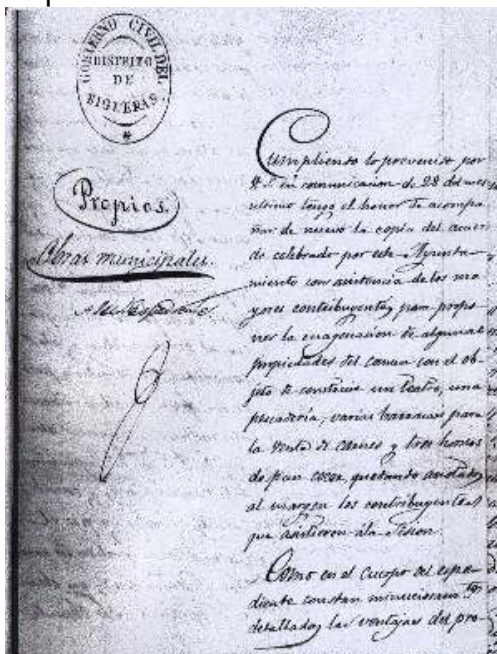 GOBIERNO CIVIL DEL
DISTRITO
DE
FIGUERAS
Propios.
Obras municipales.
Cumpliendo lo prevenido por
V. S. en comunicacion de 28 del mes
ultimo tengo el honor de acompa
ñar de nuevo la copia del acuer
do celebrado por este Ayunta
miento con asistencia de los ma
yores contribuyentes, para propo
ner la enagenacion de algunas
propiedades del comun con el ob-
jeto de construir un teatro, una
pescadería, varias barracas para
la venta de carnes y tres hornos
de pan cocer, quedando anotados
al margen los contribuyentes
que asistieron á la sesion.
Como en el cuerpo del espe
diente constan minuciosam.te
detalladas las ventajas del pro-